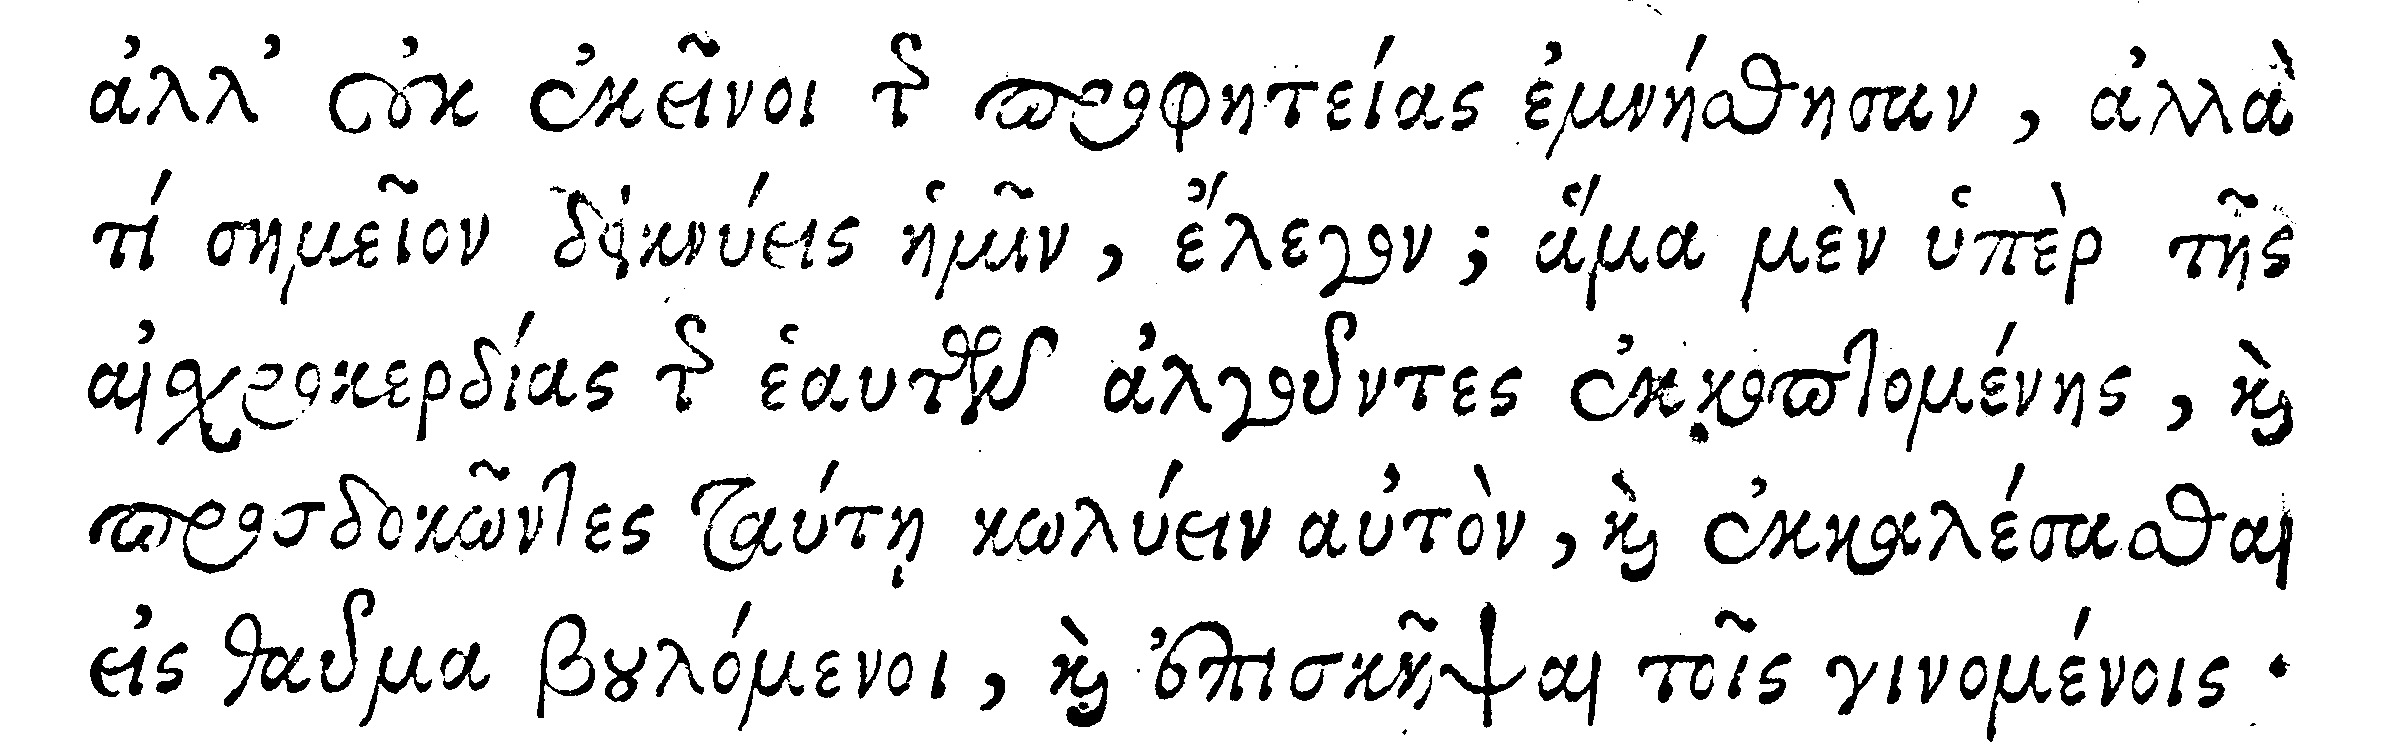 ἀλλ' οὐκ ἐκεῖνοι τῆς προφητείας ἐμνήσθησαν, ἀλλὰ
τί σημεῖον δεικνύεις ἡμῖν, ἔλεγον; ἅμα μὲν ὑπὲρ τῆς
αἰσχροκερδίας τῆς ἑαυτῶν ἀλγοῦντες ἐκκοπτομένης, καὶ
προσδοκῶντες ταύτῃ κωλύειν αὐτὸν, καὶ ἐκκαλέσασθαι
εἰς θαῦμα βουλόμενοι, καὶ ἐπισκῆψαι τοῖς γινομένοις·